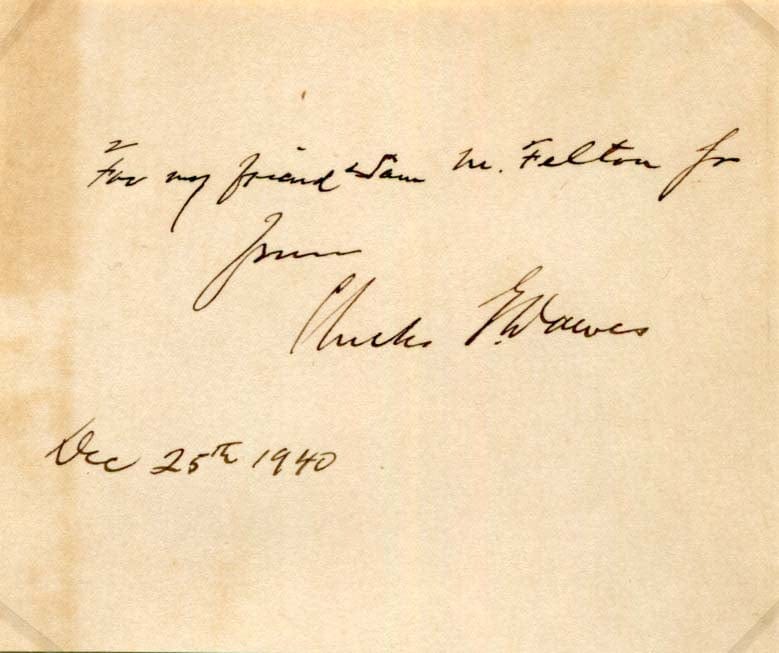 For my friend Sam M. Felton Jr
from
Charles G. Dawes
Dec 25th 1940